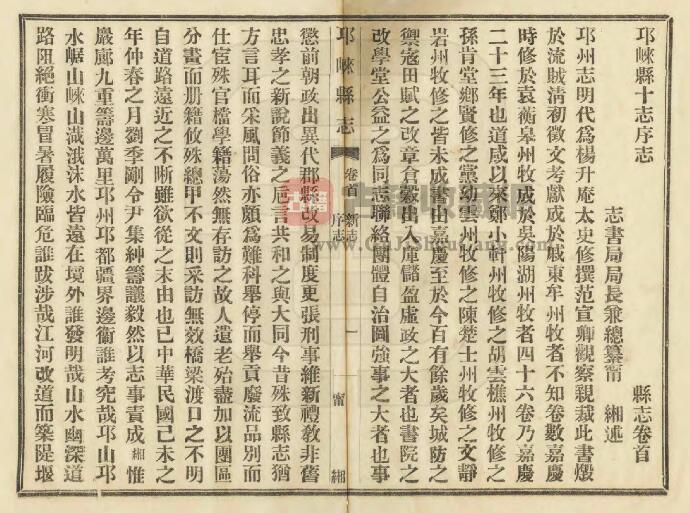 邛崍縣十志序志
志書局局長兼總纂甯 緗述 縣志卷首
邛州志明代爲楊升庵太史修撰范宣卿觀察親裁此書燬
於流賊淸初徵文考獻成於戚東牟州牧者不知卷數嘉慶
時修於袁蘅皋州牧成於吳陽湖州牧者四十六卷乃嘉慶
二十三年也道咸以來鄭小軒州牧修之胡雲樵州牧修之
孫肯堂鄉賢修之黨幼雲州牧修之陳楚士州牧修之文靜
岩州牧修之皆未成書由嘉慶至於今百有餘歲矣城防之
禦寇田賦之改章倉穀出入庫儲盈虛政之大者也書院之
改學堂公益之爲同志聯絡團體自治圖強事之大者也事
邛崍縣志 卷首 新志 序志 一 甯 緗
懲前朝政出異代郡縣改易制度更張刑事維新禮敎非舊
忠孝之新說節義之卮言共和之與大同今昔殊致縣志猶
方言耳而宋風問俗亦頗爲難科舉停而舉貢廢流品別而
仕宦殊官檔學籍蕩然無存訪之故人遺老殆盡加以團區
分畫而册籍攸殊總甲不文則采訪無效橋梁渡口之不明
自道路遠近之不晰雖欲從之末由也已中華民國己未之
年仲春之月劉季剛令尹集紳籌議毅然以志事責成緗惟
嚴廊九重籌邊萬里邛州邛都疆界邊衞誰考究哉邛山邛
水崌山崍山濈涐沫水皆遠在境外誰發明哉山水幽深道
路阻絕衝寒冒暑履險臨危誰跋涉哉江河改道而築隄堰